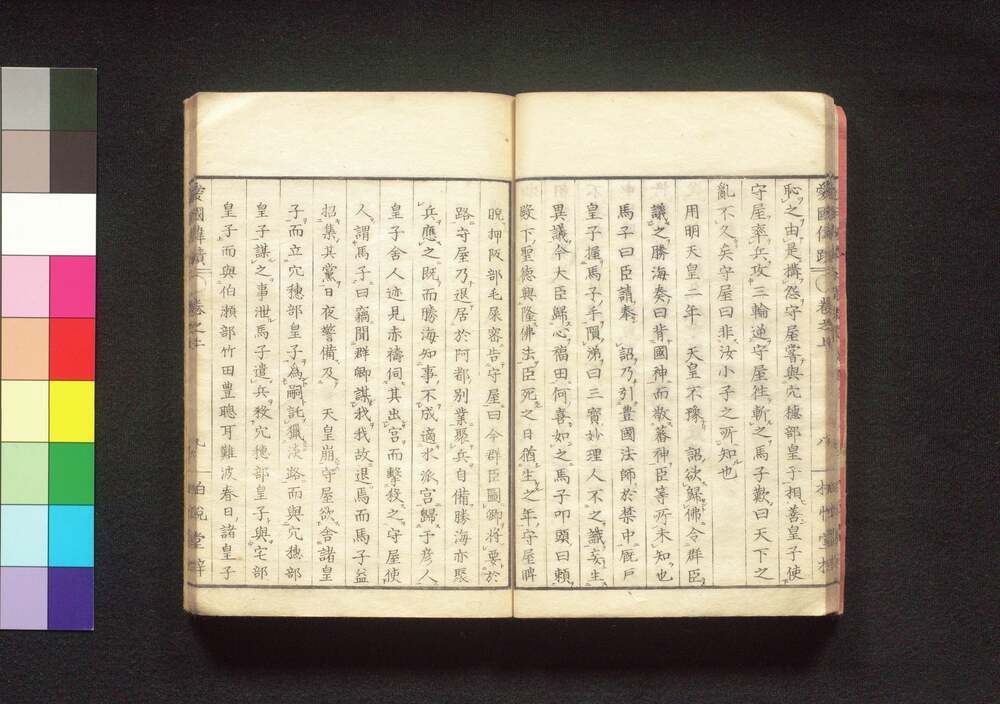 恥之由是搆怨守屋嘗與穴穗部皇子相善皇子使
守屋率兵攻三輪逆守屋徃斬之馬子歎曰天下之
亂不久矣守屋曰非汝小子之所知也
用明天皇二年　天皇不豫　詔欲歸佛令群臣
議之勝海奏曰背國神而敬蕃神臣等所未知也
馬子曰臣請奉　詔乃引豊國法師於禁中厩戸
皇子握馬子手隕涕曰三寳妙理人不之識妄生
異議今大臣歸心福田何喜如之馬子叩頭曰頼
殿下聖德興隆佛法臣死之日猶生之年守屋睥
睨押阪部毛屎密告守屋曰今群臣圖卿將要於
路守屋乃退居於阿都別業聚兵自備勝海亦聚
兵應之既而勝海知事不成適水派宮歸于彦人
皇子舍人迹見赤檮伺其出宮而擊殺之守屋使
人謂馬子曰竊聞群卿謀我我故退焉而馬子益
招集其黨日夜警備及　天皇崩守屋欲舍諸皇
子而立穴穗部皇子為嗣託獵淡路而與穴穗部
皇子謀之事泄馬子遣兵殺穴穗部皇子與宅部
皇子而與伯瀬部竹田豊聰耳難波春日諸皇子
愛國偉績　卷之二　九